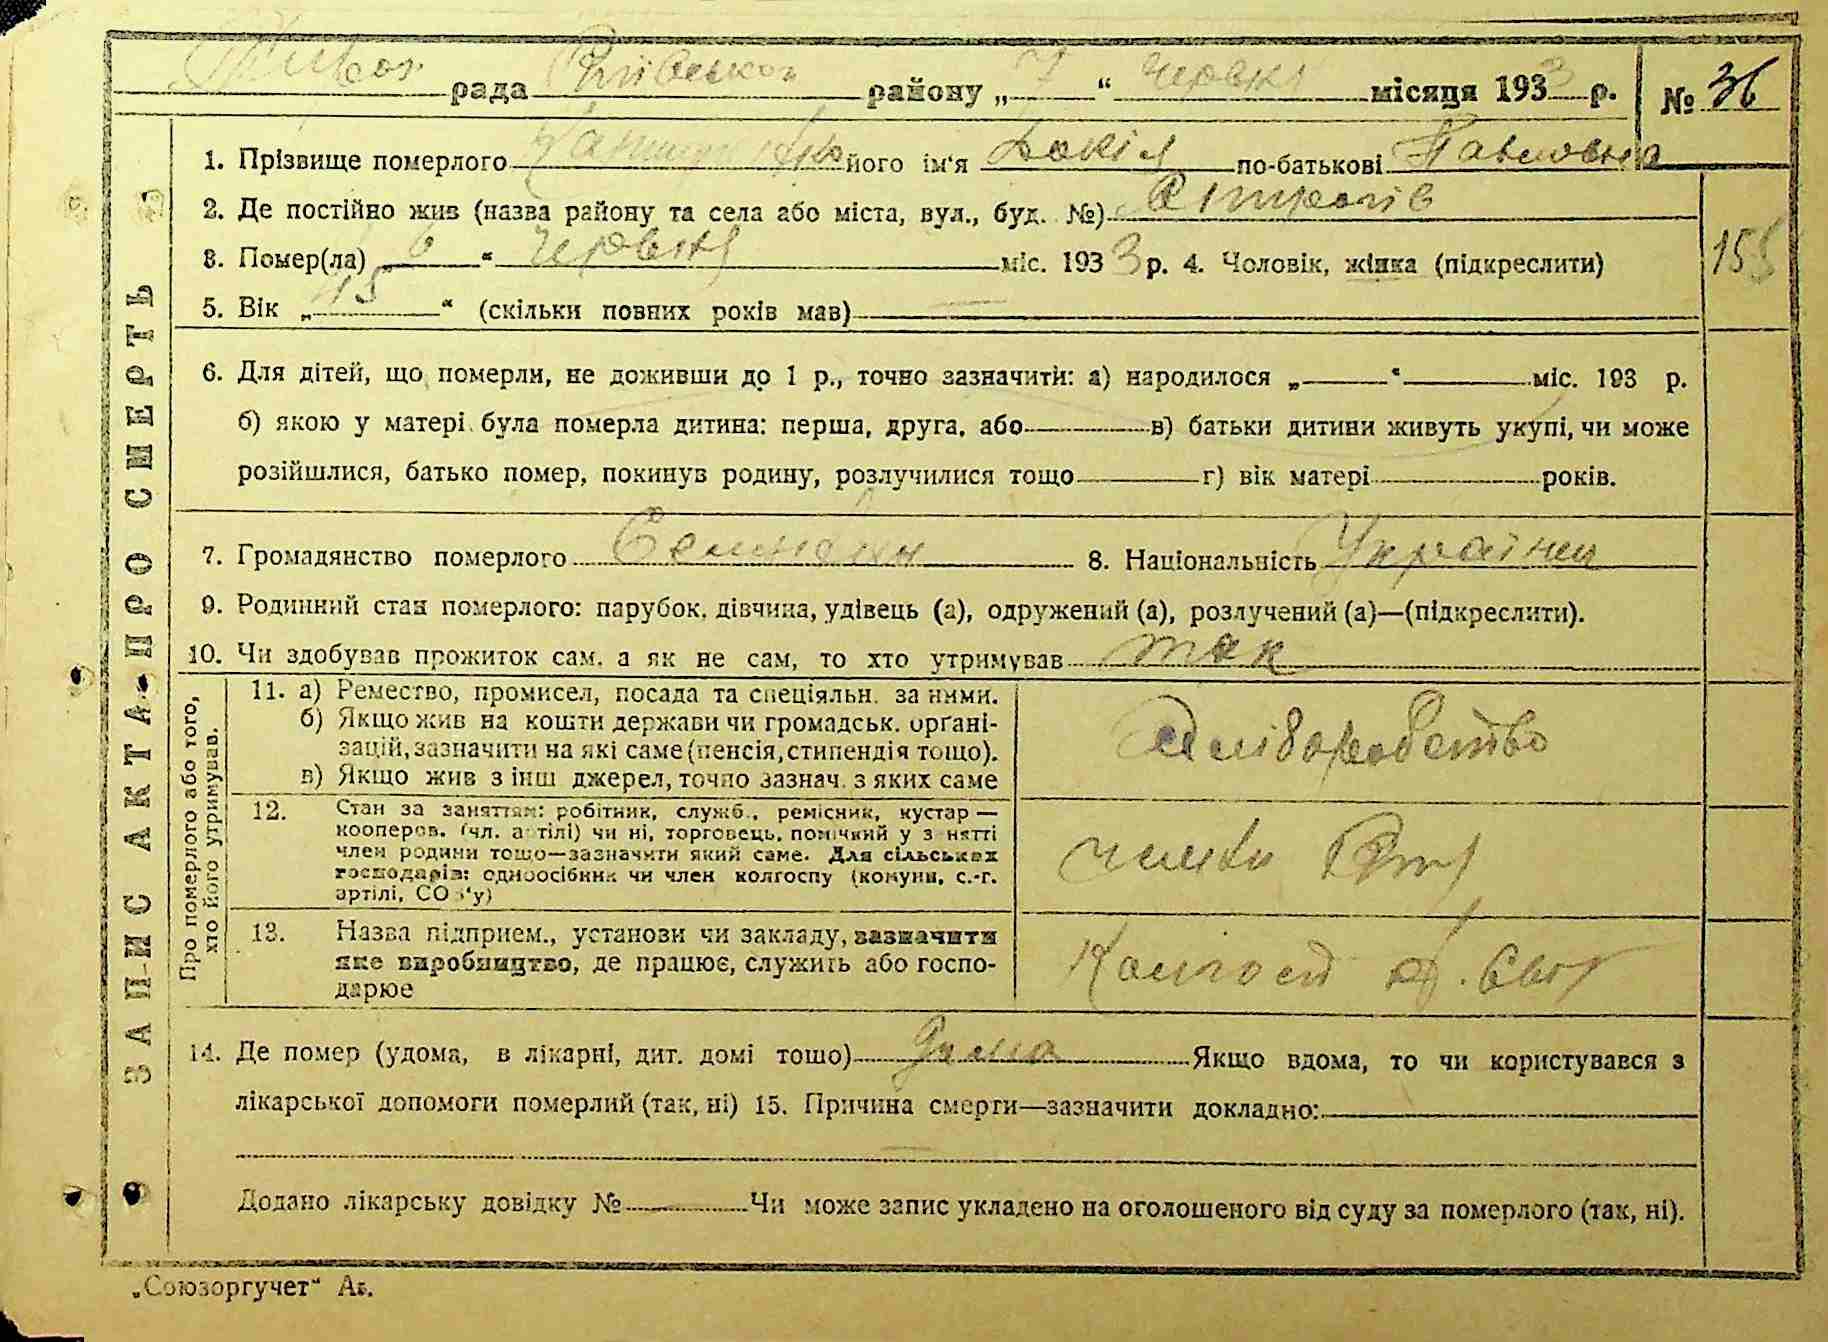 рада району „ 7 “ червня місяця 1933 р. № 36
ЗАПИС АКТА ПРО СМЕРТЬ
1. Прізвище померлого його ім‘я Докія по-батькові Павловна
2. Де постійно жив (назва району та села або міста, вул., буд. №)
3. Помер(ла) „ 6 “ червня міс. 1933 р. 4. Чоловік, жінка (підкреслити)
155
5. Вік „ 45 “ (скільки повних років мав)
6. Для дітей, що померли, не доживши до 1 р., точно зазначити: а) народилося „ “ міс. 193 р.
б) якою у матері була померла дитина: перша, друга, або в) батьки дитини живуть укупі, чи може
розійшлися, батько помер, покинув родину, розлучилися тощо г) вік матері років.
7. Громадянство померлого 8. Національність
9. Родинний стан померлого: парубок, дівчина, удівець (а), одружений (а), розлучений (а)—(підкреслити).
10. Чи здобував прожиток сам, а як не сам, то хто утримував так
Про померлого або того,
хто його утримував.
11. а) Ремество, промисел, посада та спеціяльн. за ними.
б) Якщо жив на кошти держави чи громадськ. орґані-
зацій, зазначити на які саме (пенсія, стипендія тощо).
в) Якщо жив з інш джерел, точно зазнач. з яких саме
12. Стан за заняттям: робітник, служб., ремісник, кустар —
кооперов. (чл. артілі) чи ні, торговець, помічний у з нятті
член родини тощо—зазначити який саме. Для сільських
господарів: одноосібник чи член колгоспу (комуни, с.-г.
артілі, СО з‘у)
13. Назва підприєм., установи чи закладу, зазначити
яке виробництво, де працює, служить або госпо-
дарює
14. Де помер (удома, в лікарні, дит. домі тощо) дома Якщо вдома, то чи користувався з
лікарської допомоги померлий (так, ні) 15. Причина смерти—зазначити докладно:
Додано лікарську довідку № Чи може запис укладено на оголошеного від суду за померлого (так, ні).
„Союзоргучет“